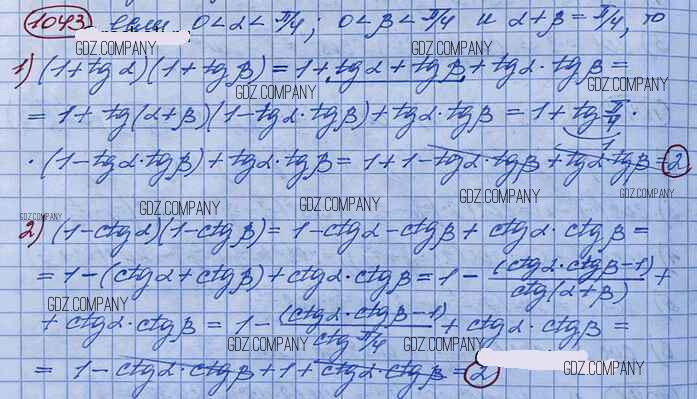 1043 если 0 < α < π/4; 0 < β < π/4 и α + β = π/4, то
GDZ.COMPANY GDZ.COMPANY
1) (1 + tg α)(1 + tg β) = 1 + tg α + tg β + tg α · tg β =
GDZ.COMPANY GDZ.COMPANY
= 1 + tg(α + β)(1 - tg α · tg β) + tg α · tg β = 1 + tg π/4 ·
1
· (1 - tg α · tg β) + tg α · tg β = 1 + 1 - tg α · tg β + tg α · tg β = 2
GDZ.COMPANY GDZ.COMPANY GDZ.COMPANY GDZ.COMPANY GDZ.COMPANY
2) (1 - ctg α)(1 - ctg β) = 1 - ctg α - ctg β + ctg α · ctg β =
= 1 - (ctg α + ctg β) + ctg α · ctg β = 1 - (ctg α · ctg β - 1)/ctg(α + β) +
GDZ.COMPANY
+ ctg α · ctg β = 1 - (ctg α · ctg β - 1)/ctg π/4 + ctg α · ctg β =
GDZ.COMPANY GDZ.COMPANY
= 1 - ctg α · ctg β + 1 + ctg α · ctg β = 2
GDZ.COMPANY